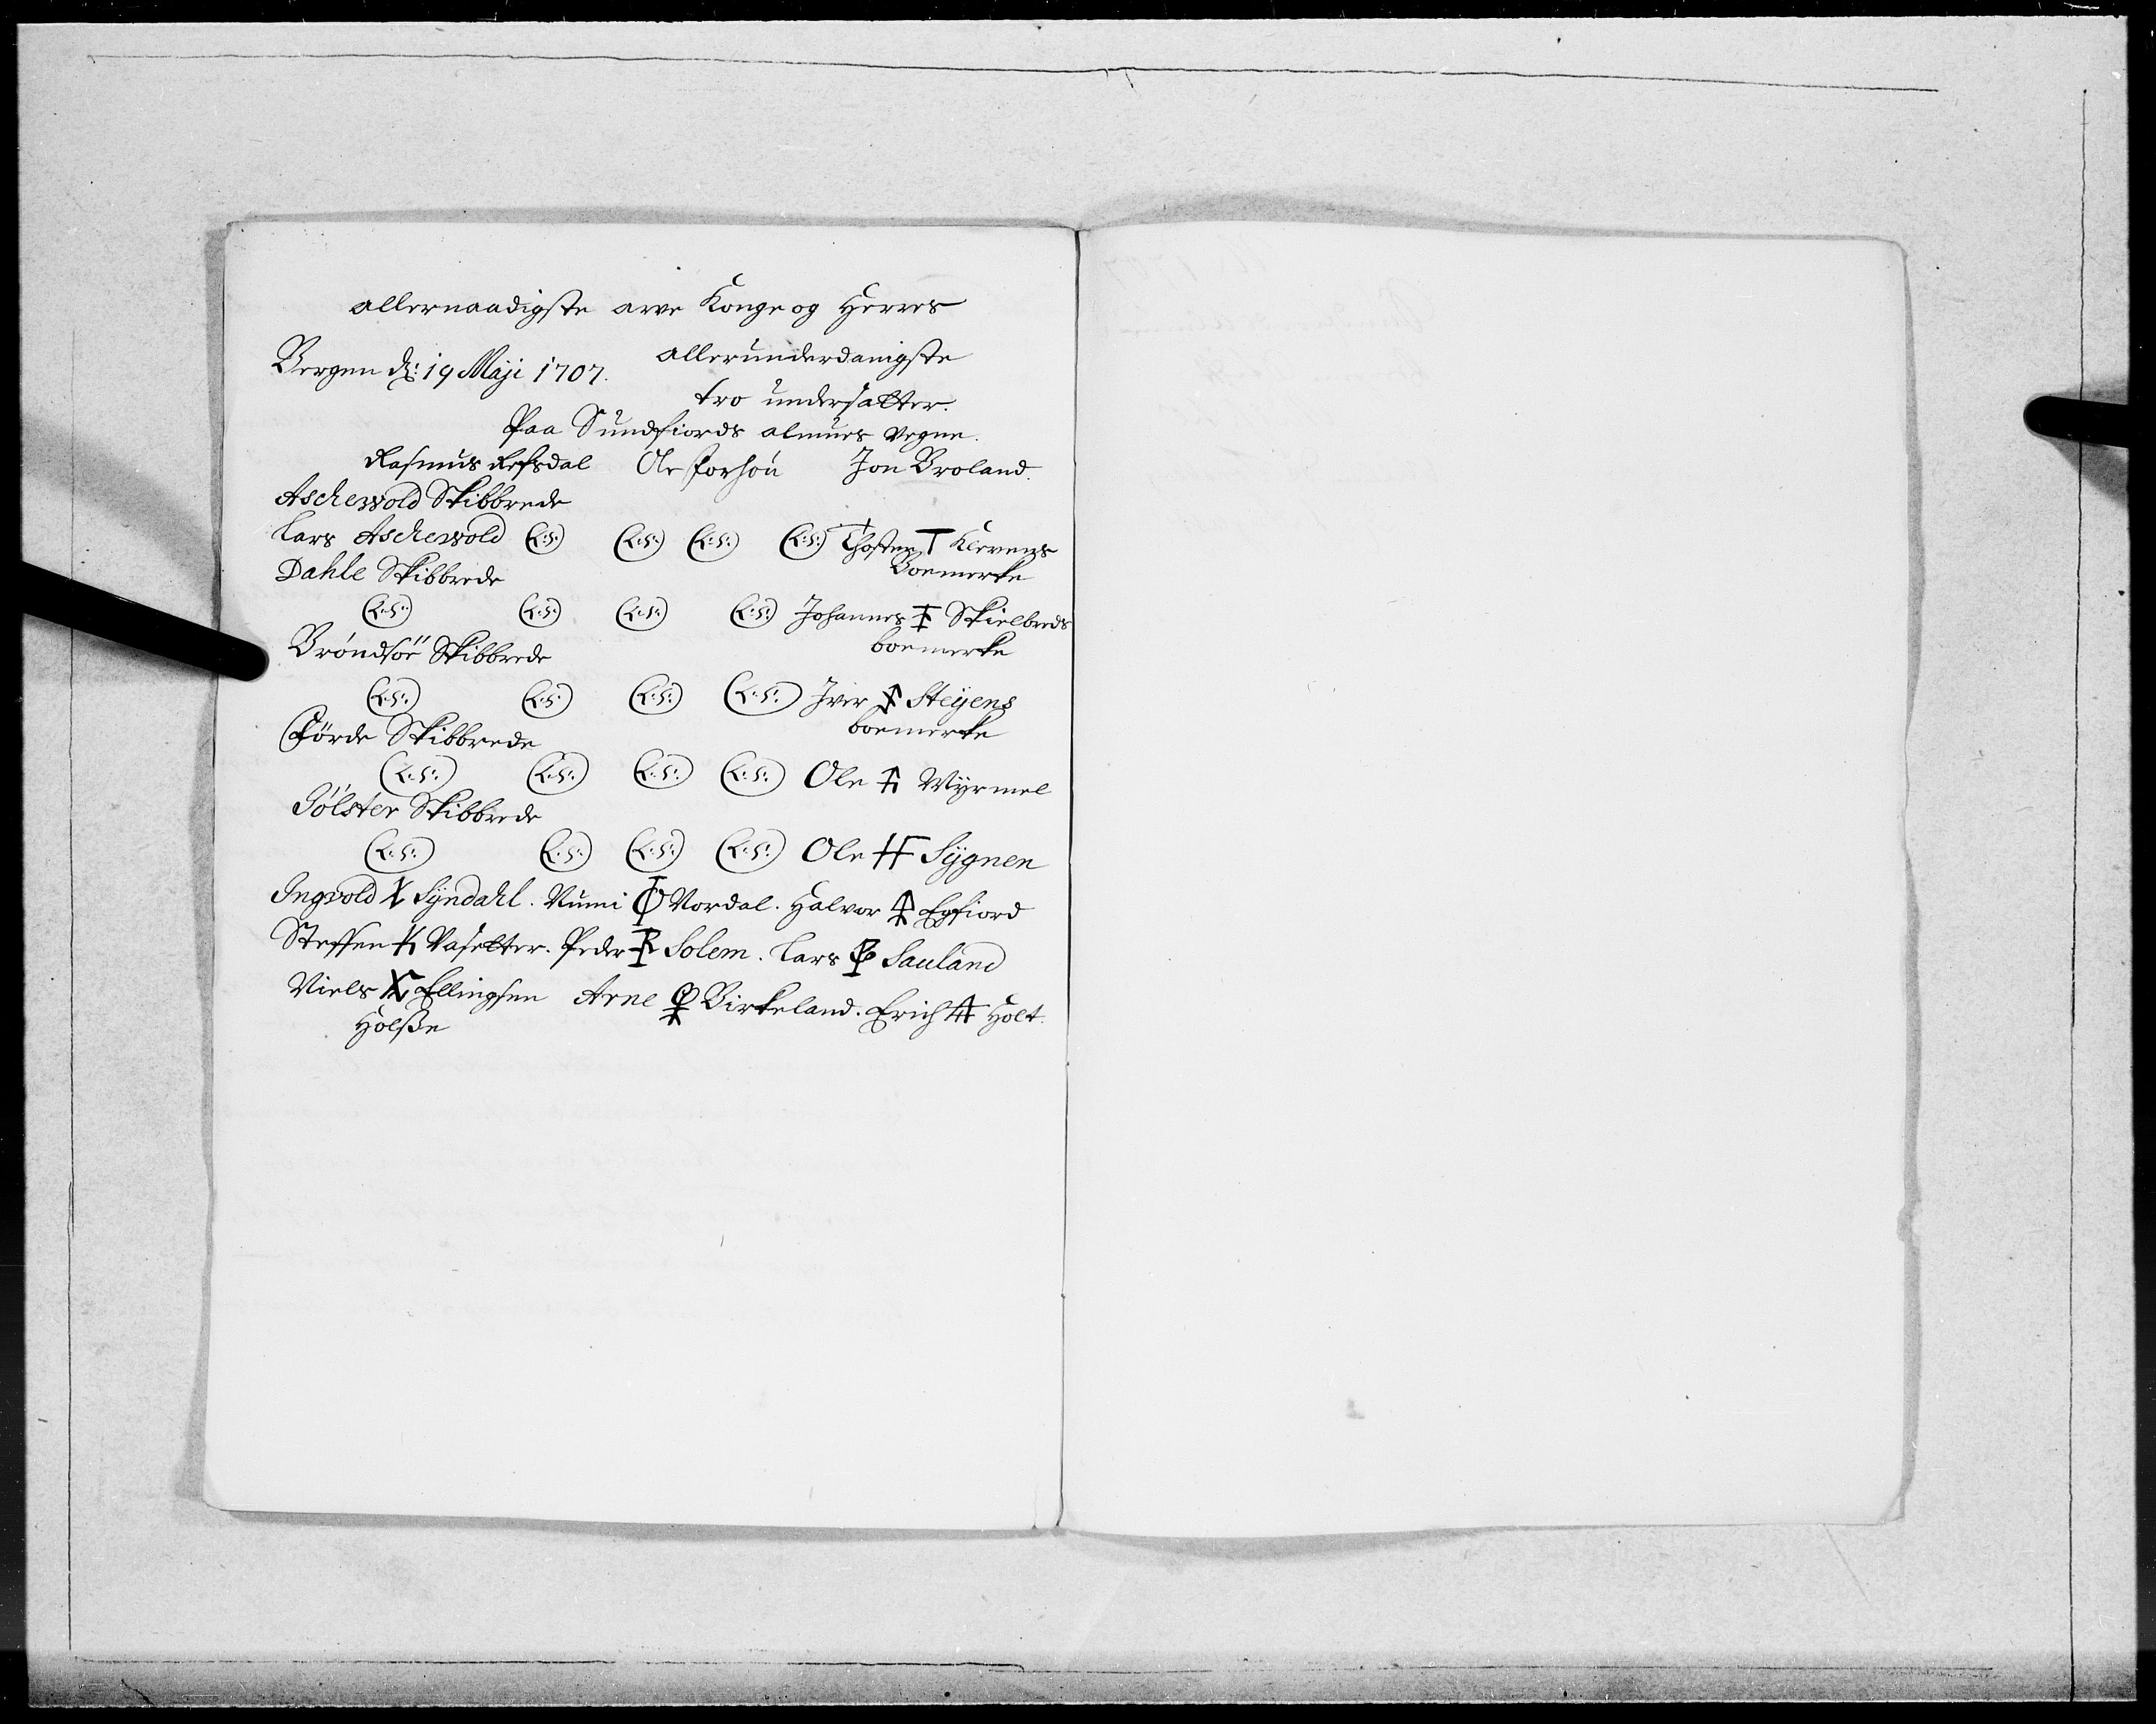 allernaadigste arve Konge og Herres
Bergen d: 19 Maji 1707. allerunderdanigste
tro undersatter.
Paa Sundfiords almues vegne.
Rasmus Refsdal Ole Jon Broland.
Aschewold Skibbrede
Lars Aschewold (L.S.) (L.S.) (L.S.) (L.S.) Thosten T Klevens
Boemerke
Dahle Skibbrede
(L.S.) (L.S.) (L.S.) (L.S.) Johannes Skielbreds
boemerke
Bröndsöe Skibbrede
(L.S.) (L.S.) (L.S.) (L.S.) Iver Steÿens
boemerke
Förde Skibbrede
(L.S.) (L.S.) (L.S.) (L.S.) Ole Mÿrmel
Jölster Skibbrede
(L.S.) (L.S.) (L.S.) (L.S.) Ole Sÿgnen
Ingvold Sÿndahl. Nummi Nordal. Halvor Egfiord
Steffen Vasetter. Peder Solem. Lars Sauland
Niels Ellingsen Arne Birkeland. Erich Holt.
Holsße